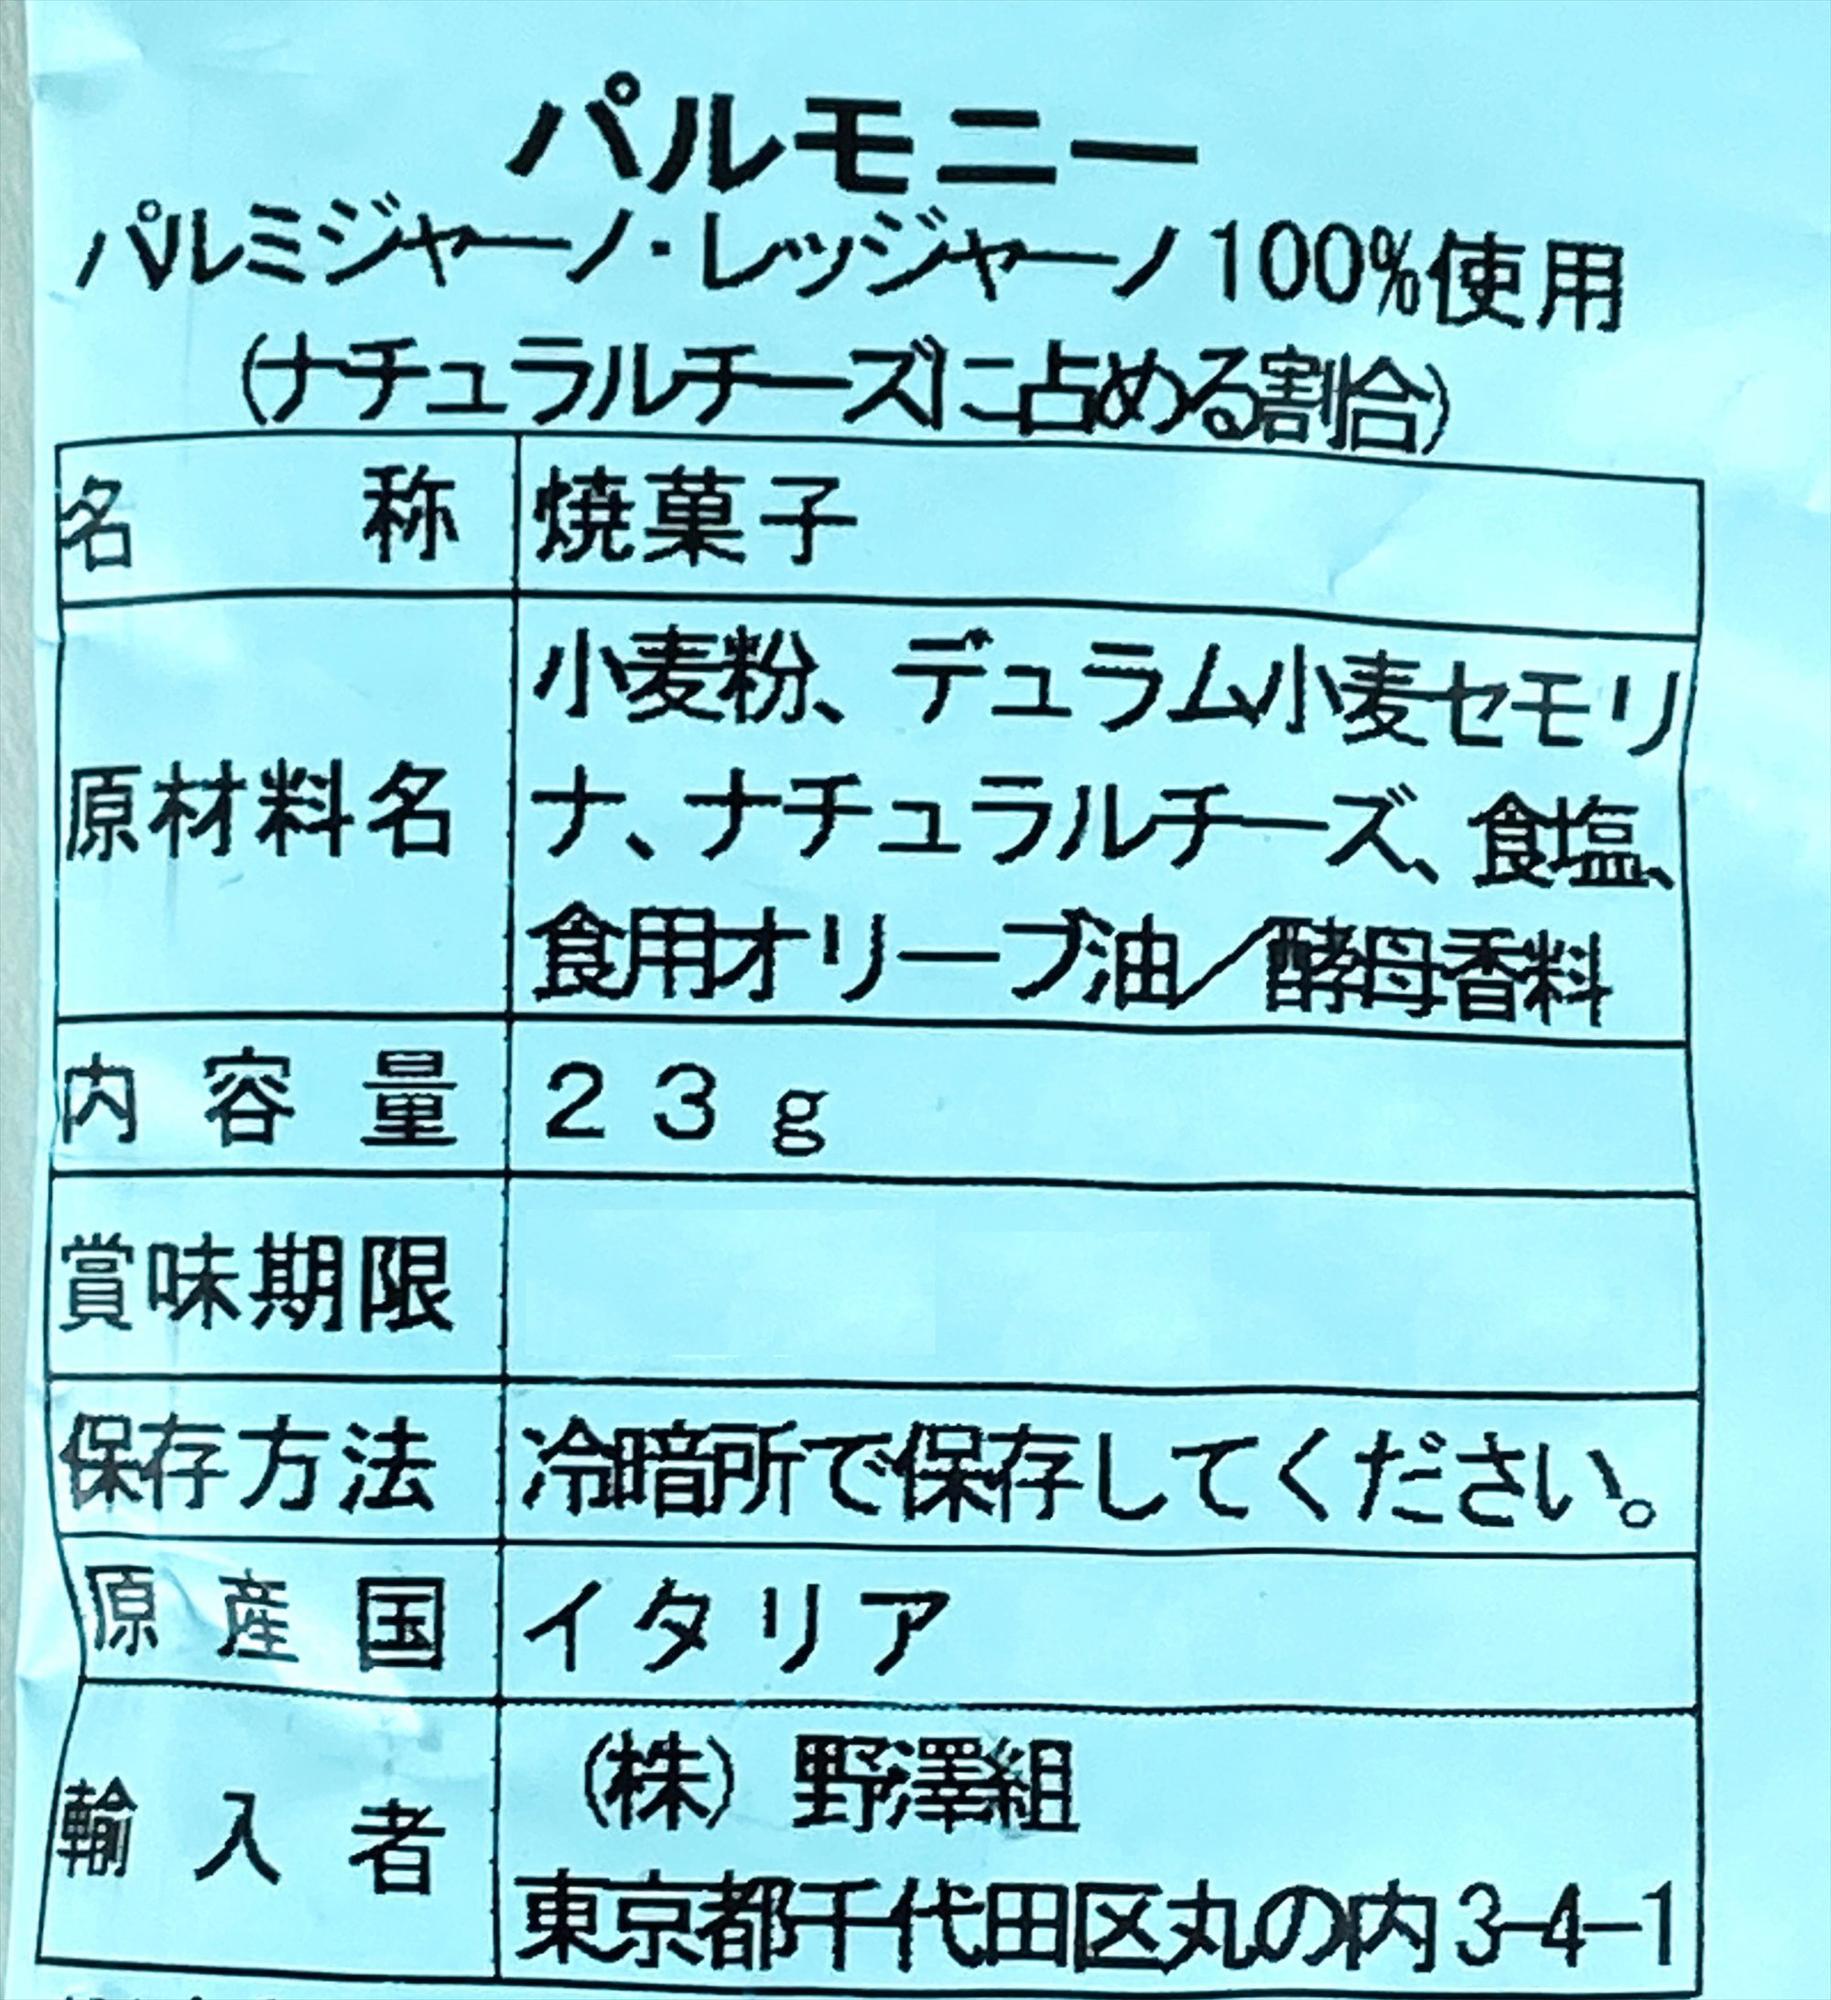 パルモニー
パルミジャーノ・レッジャーノ100%使用
(ナチュラルチーズに占める割合)
名称 焼菓子
原材料名 小麦粉、デュラム小麦セモリ
ナ、ナチュラルチーズ、食塩、
食用オリーブ油／酵母香料
内容量 23g
賞味期限
保存方法 冷暗所で保存してください。
原産国 イタリア
輸入者 (株)野澤組
東京都千代田区丸の内3-4-1